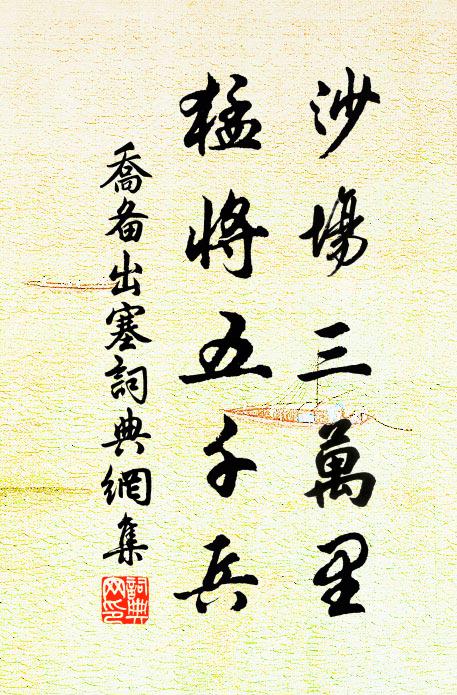 沙場三萬里
猛將五千兵
喬备出塞詞典網集
詞典网印